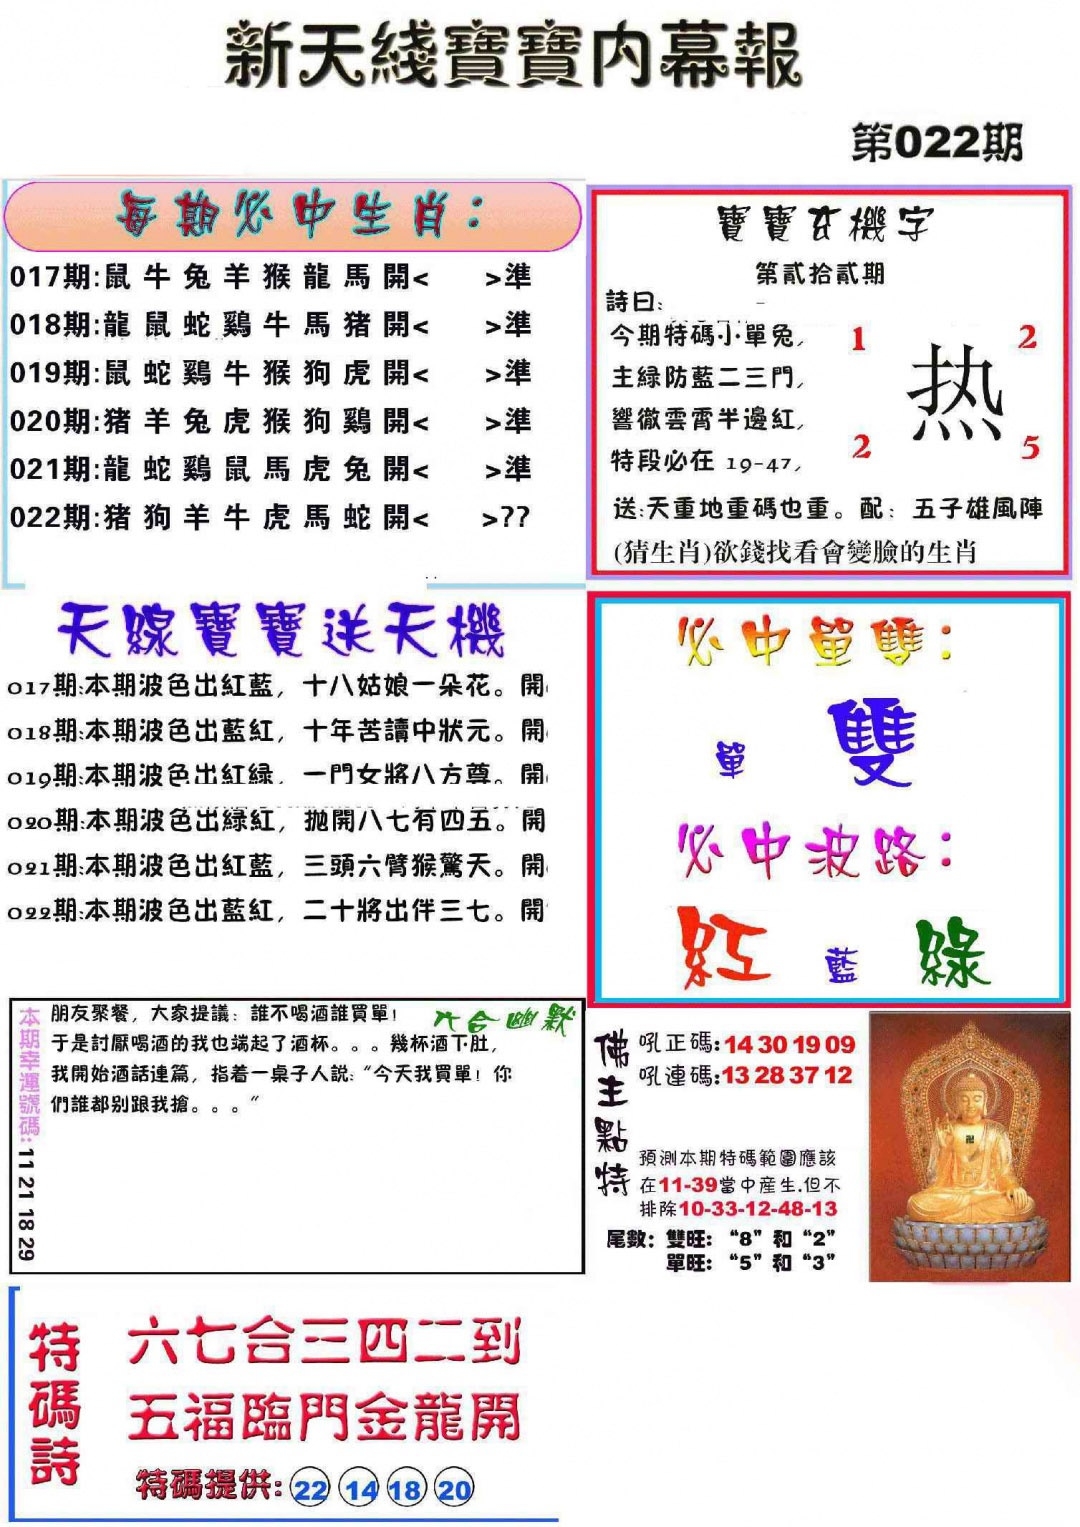 新天綫寶寶内幕報
第022期
每期必中生肖：
017期:鼠牛兔羊猴龍馬開< >準
018期:龍鼠蛇鷄牛馬猪開< >準
019期:鼠蛇鷄牛猴狗虎開< >準
020期:猪羊兔虎猴狗鷄開< >準
021期:龍蛇鷄鼠馬虎兔開< >準
022期:猪狗羊牛虎馬蛇開< >??
寶寶玄機字
第貳拾貳期
詩曰:
今期特碼小單兔,
主綠防藍二三門,
響徹雲霄半邊紅,
特段必在 19-47,
1 2
热
2 5
送:天重地重碼也重。配: 五子雄風陣
(猜生肖)欲錢找看會變臉的生肖
天線寶寶送天機
017期:本期波色出紅藍, 十八姑娘一朵花。開
018期:本期波色出藍紅, 十年苦讀中狀元。開
019期:本期波色出紅緑, 一門女將八方尊。開
020期:本期波色出綠紅, 抛開八七有四五。開
021期:本期波色出紅藍, 三頭六臂猴驚天。開
022期:本期波色出藍紅, 二十將出伴三七。開
必中單雙：
單 雙
必中波路：
紅 藍 綠
本期幸運號碼: 11 21 18 29
六合幽默
朋友聚餐, 大家提議: 誰不喝酒誰買單!
于是討厭喝酒的我也端起了酒杯。。。幾杯酒下肚,
我開始酒話連篇, 指着一桌子人説: “今天我買單! 你
們誰都别跟我搶。。。”
佛主點特
吼正碼:14 30 19 09
吼連碼:13 28 37 12
預測本期特碼範圍應該
在11-39當中産生.但不
排除10-33-12-48-13
尾數: 雙旺: “8” 和 “2”
單旺: “5” 和 “3”
特碼詩
六七合三四二到
五福臨門金龍開
特碼提供: 22 14 18 20